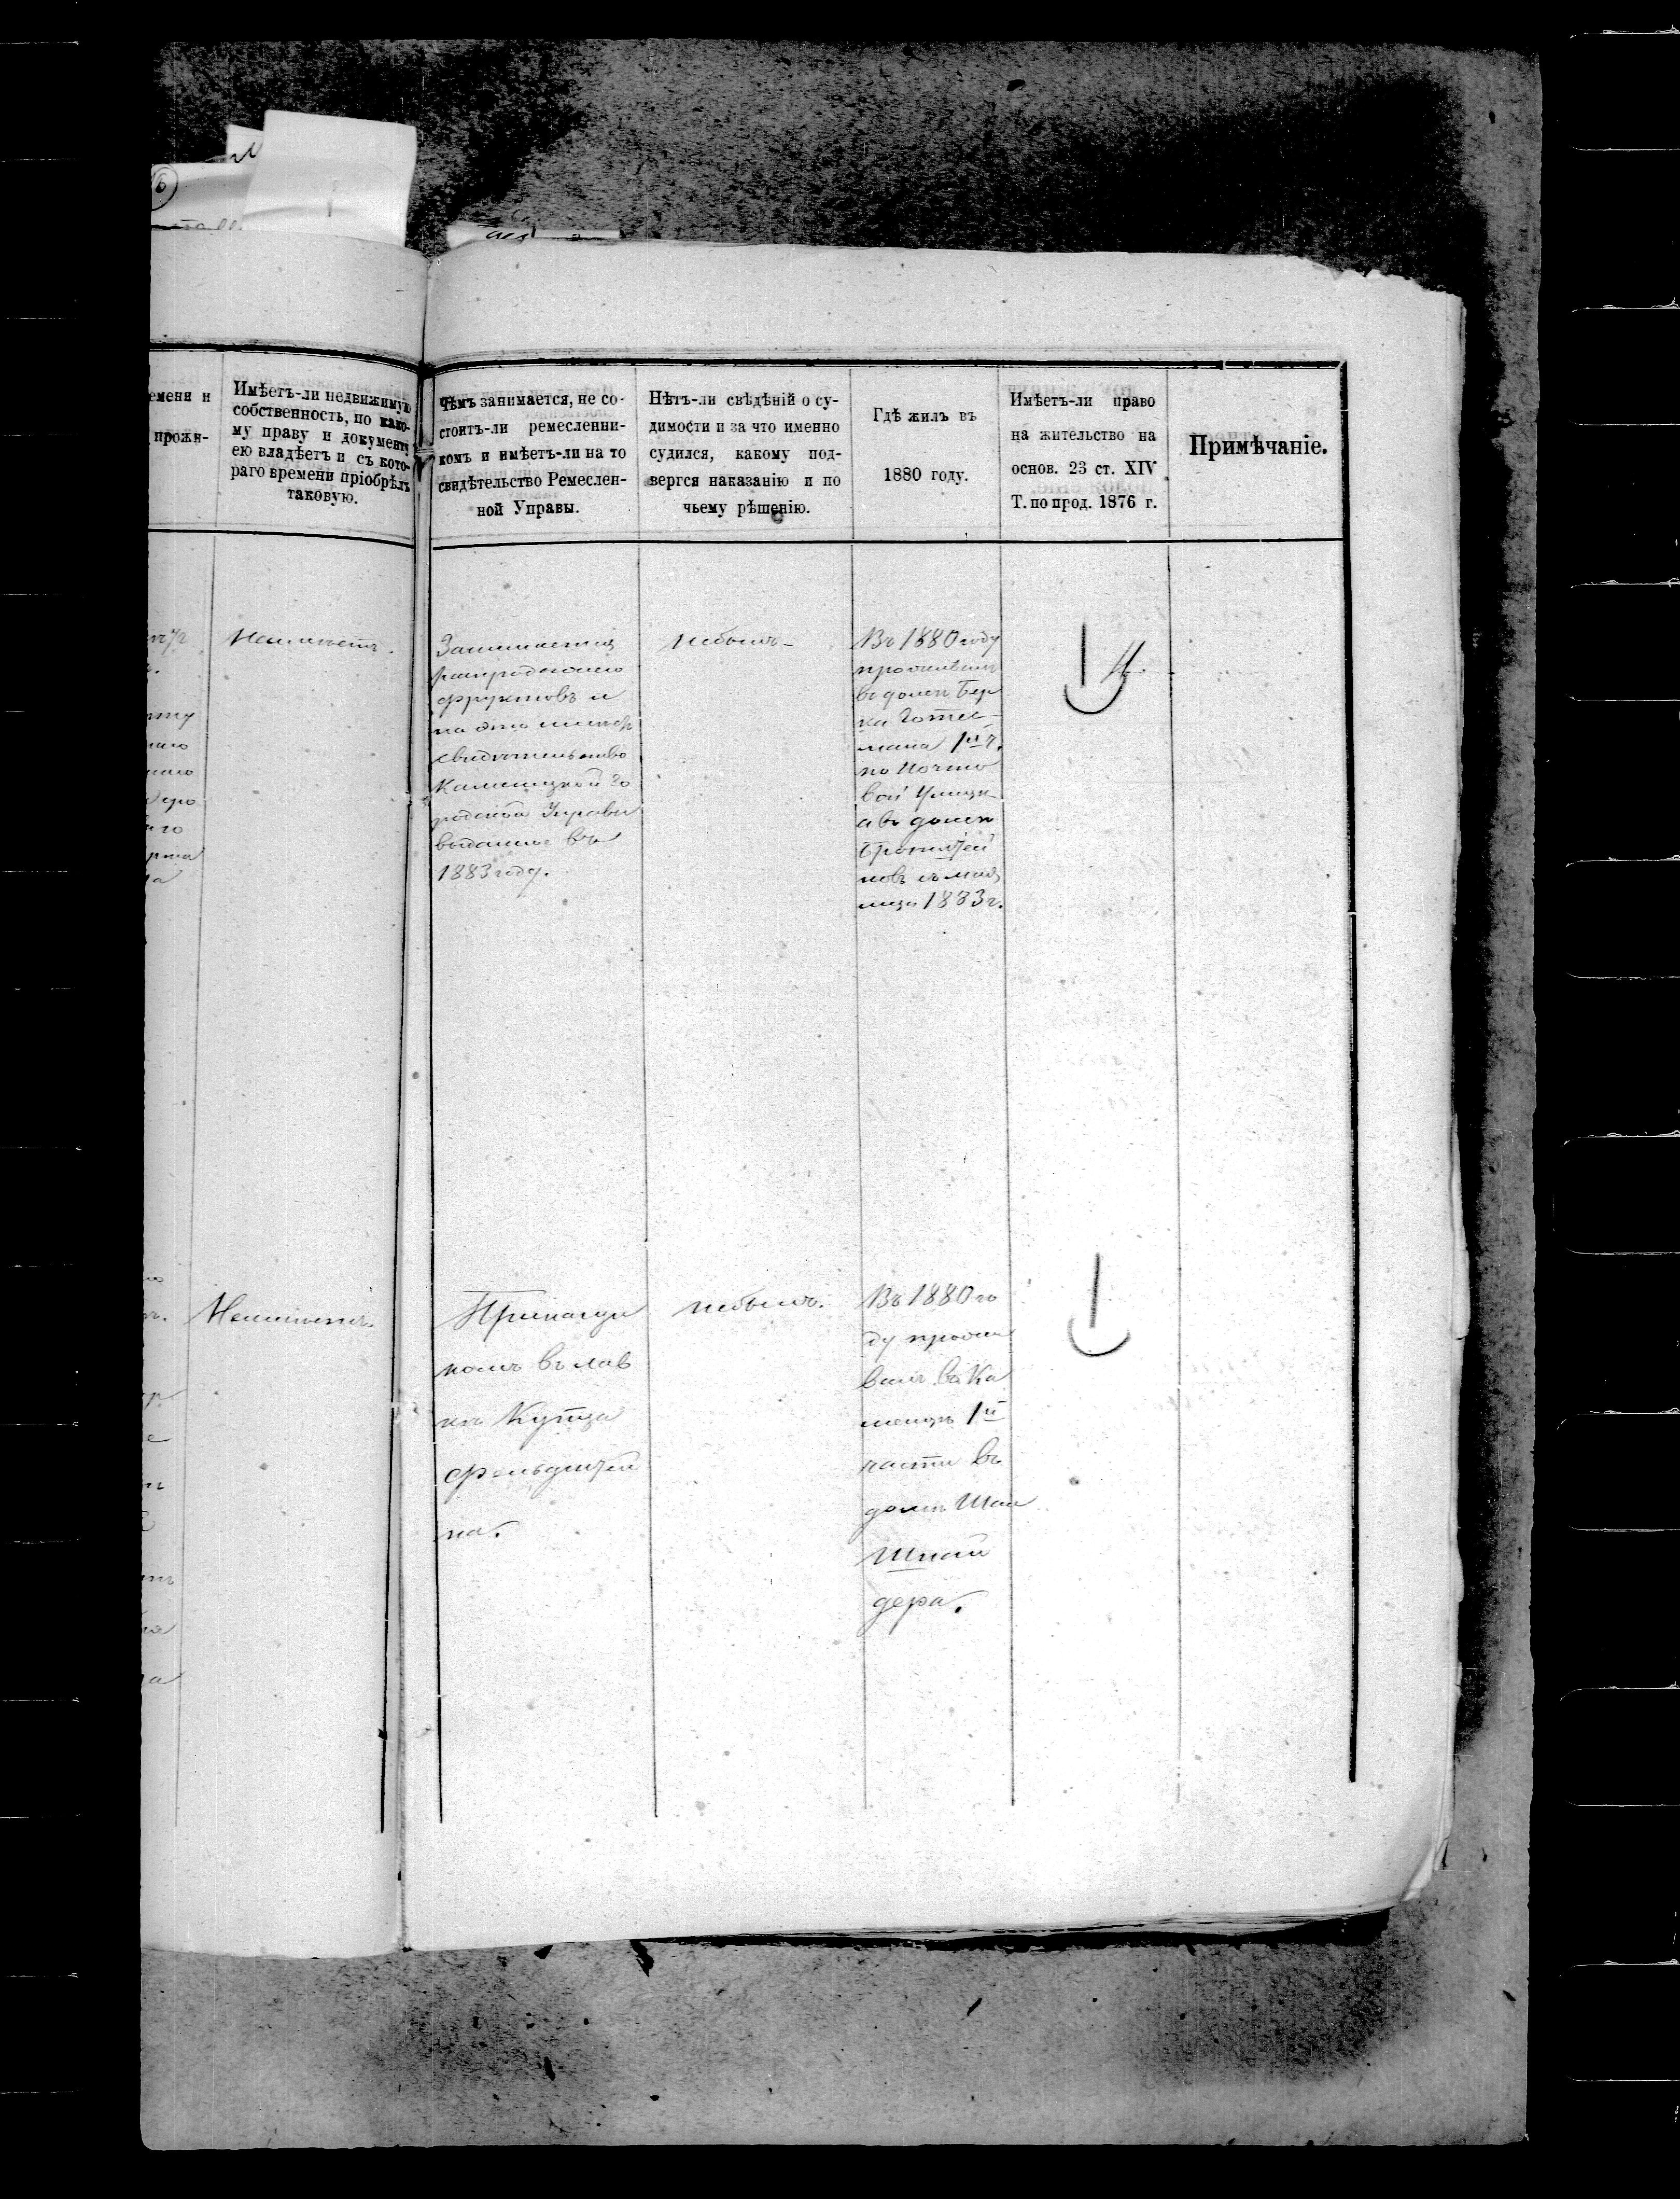 еменя и
прожи-
Имѣетъ-ли недвижимую
собственность, по како-
му праву и документу
ею владѣетъ и съ кото-
раго времени пріобрѣлъ
таковую.
Чѣмъ занимается, не со-
стоитъ-ли ремесленни-
комъ и имѣетъ-ли на то
свидѣтельство Ремеслен-
ной Управы.
Нѣтъ-ли свѣдѣній о су-
димости и за что именно
судился, какому под-
вергся наказанію и по
чьему рѣшенію.
Гдѣ жилъ въ
1880 году.
Имѣетъ-ли право
на жительство на
основ. 23 ст. XIV
Т. по прод. 1876 г.
Примѣчаніе.
Неимѣетъ.
Занимается
распродажею
фруктовъ и
на это имѣетъ
свидѣтельство
Каменецкой Го
родской Управы
выданное въ
1883 году.
небылъ
Въ 1880 году
проживалъ
въ домѣ Бер
ка
мана 1й ч.
по Почто
вой улицѣ
а въ домѣ
новъ съ
1883 г.
Неимѣетъ.
Прикащи
комъ въ лав
кѣ Купца
Фельдштей
на.
небылъ.
Въ 1880 го
ду прожи
валъ въ Ка
менцѣ 1й
части въ
домѣ
Шнай
дера.